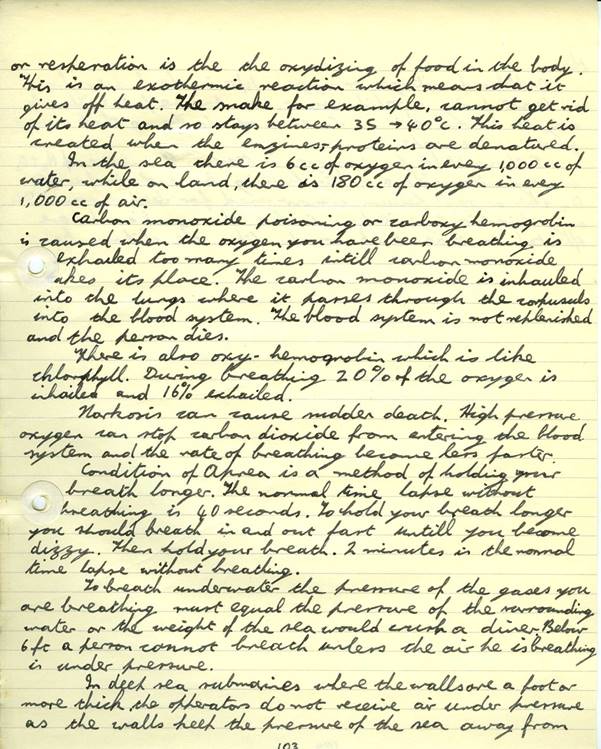 or resperation is the the oxydizing of food in the body.
This is an exothermic reaction which means that it
gives off heat. The snake for example, cannot get rid
of its heat and so stays between 35 → 40°c. This heat is
created when the enzines + proteins are denatured.
In the sea there is 6 cc of oxygen in every 1,000 cc of
water, while on land, there is 180 cc of oxygen in every
1,000 cc of air.
Carbon monoxide poisoning or carboxy hemogrobin
is caused when the oxygen you have been breathing is
exhailed too many times intill carbon monoxide
akes its place. The carbon monoxide is inhailed
into the lungs where it passes through the corpusuls
into the blood system. The blood system is not replenished
and the person dies.
There is also oxy-hemogrobin which is like
chlorphyll. During breathing 20% of the oxygen is
inhailed and 16% exhailed.
Narkosis can cause sudder death. High pressure
oxygen can stop carbon dioxide from entering the blood
system and the rate of breathing become less faster.
Condition of Apnea is a method of holding your
breath longer. The normal time lapse without
breathing is 40 seconds. To hold your breath longer
you should breath in and out fast untill you become
dizzy. Then hold your breath. 2 minutes is the normal
time lapse without breathing.
To breath underwater the pressure of the gases you
are breathing must equal the pressure of the surrounding
water or the weight of the sea would crush a diver. Below
6 ft a person cannot breath unless the air he is breathing
is under pressure.
In deep sea submarines where the walls are a foot or
more thick the opperators do not receive air under pressure
as the walls keep the pressure of the sea away from
103